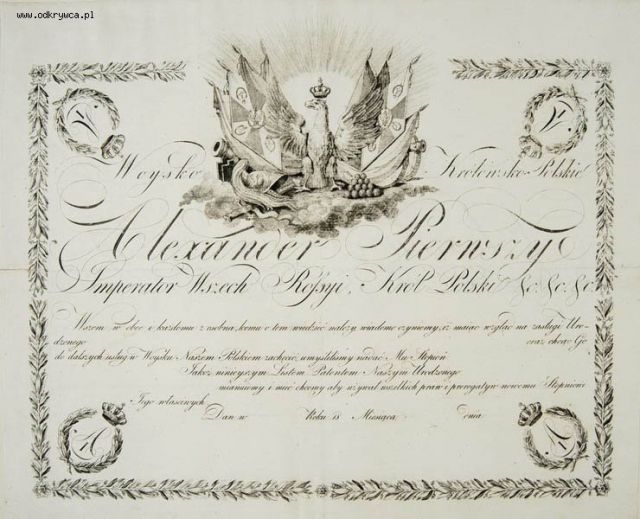 www.odkrywca.pl
Woysko Królewsko-Polskie
Alexander Pierwszy
Imperator Wszech Rossyi, Król Polski &c. &c. &c.
Wszem w obec o każdemu z osobna, komu o tem wiedzieć należy, wiadomo czyniemy, iż maiąc wzgląd na zasługi Uro-
dzonego oraz chcąc Go
do dalszych usług w Woysku Naszem Polskiem zachęcić umyśliliśmy nadać Mu Stopień
Jakoż ninieyszym Listem Patentem Naszym Urodzonego
mianuiemy i mieć chcemy aby używał wszelkich praw i prerogatyw nowemu Stopniowi
Jego właściwych
Dan w Roku 18 Miesiąca dnia